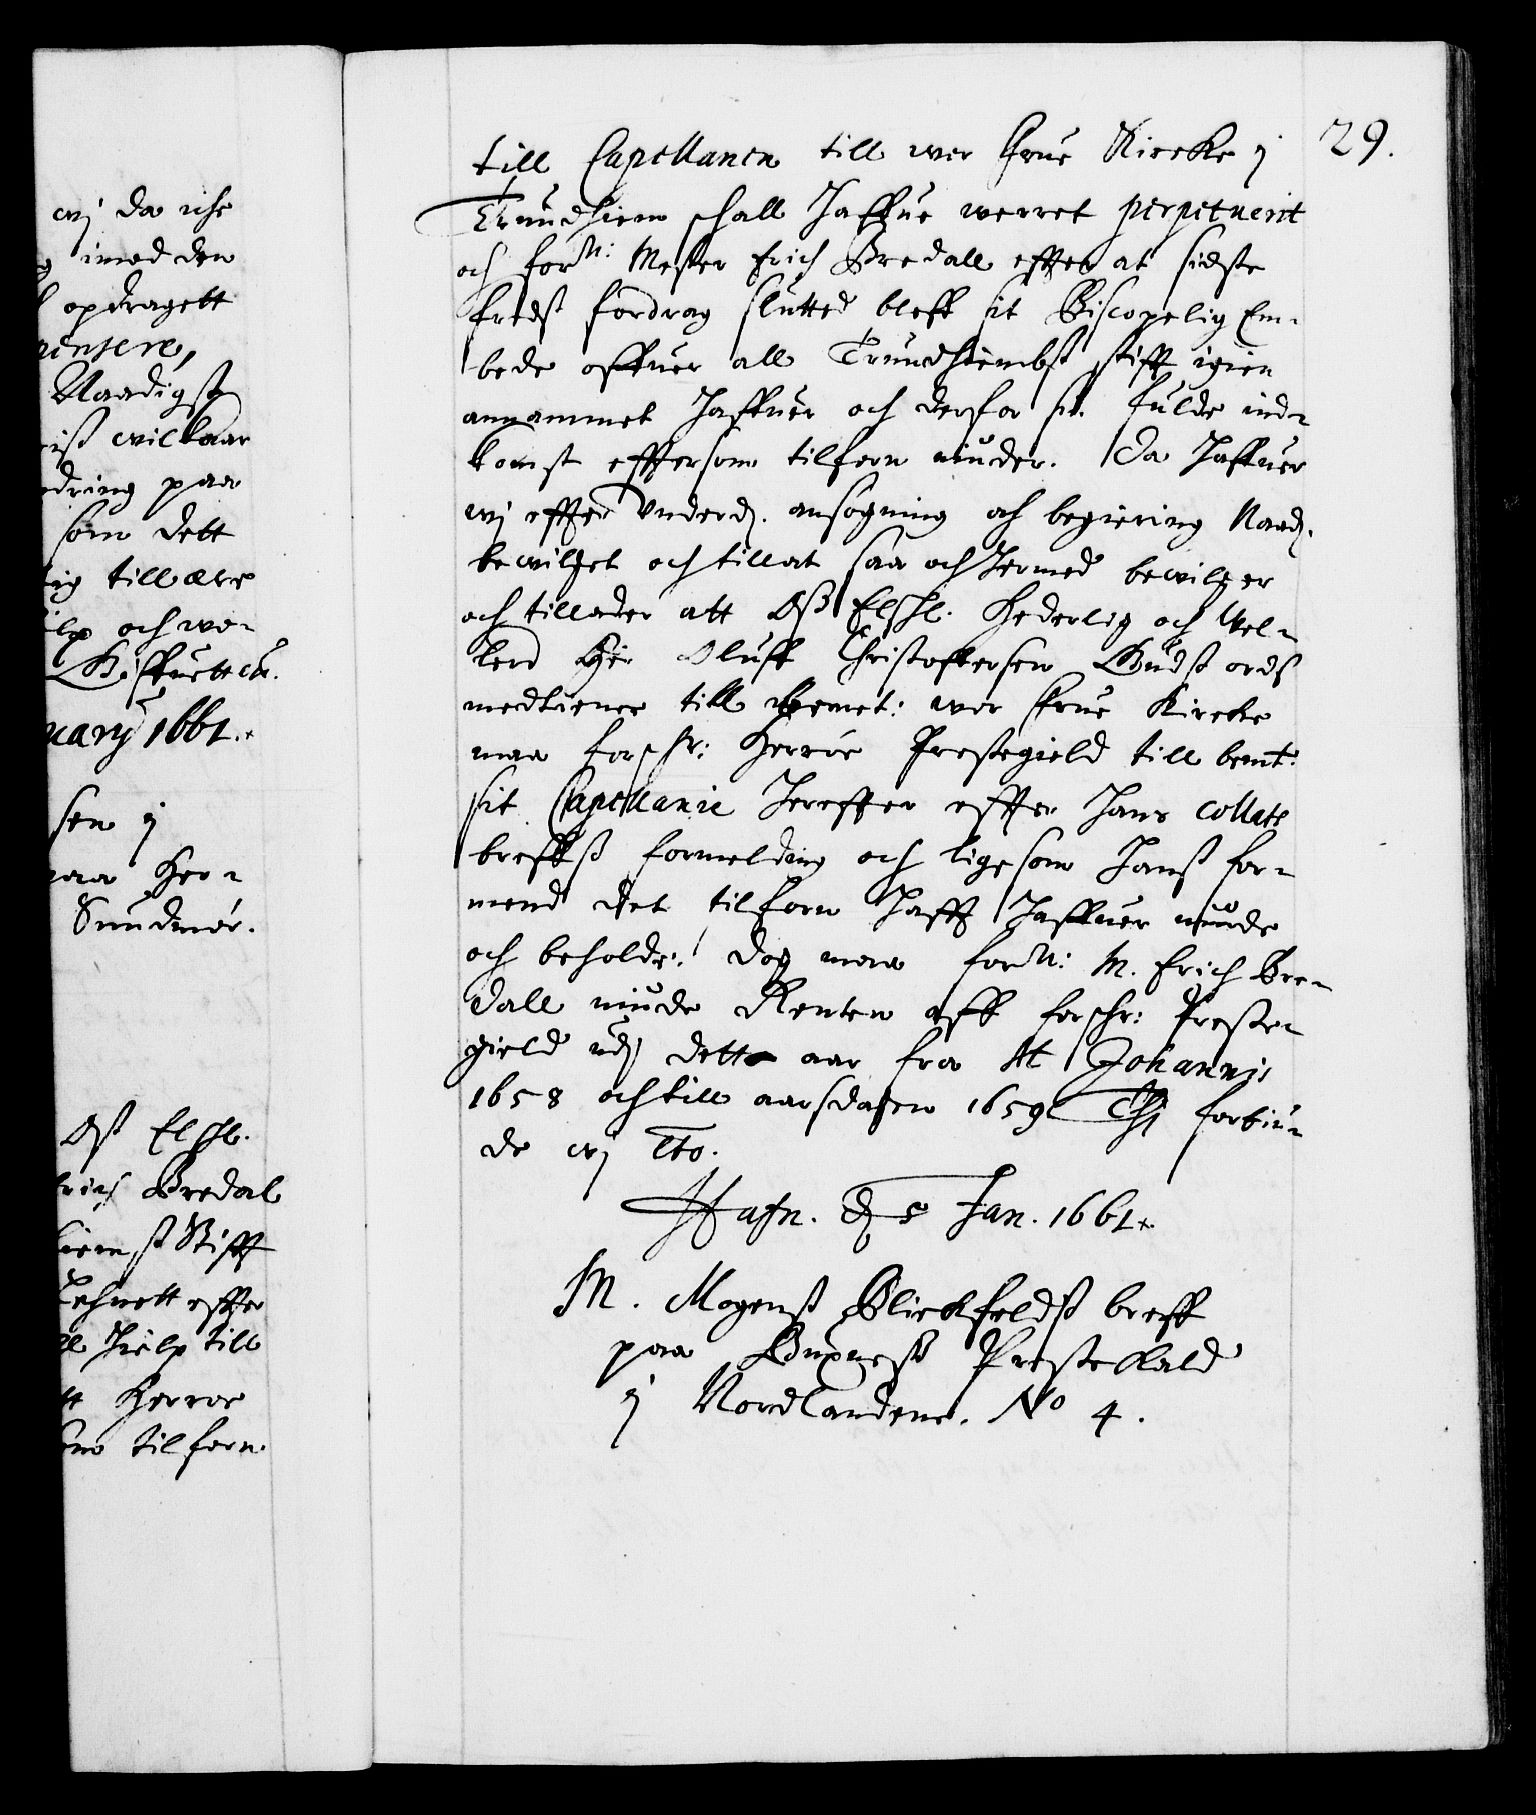 wj da icke
imod den
opdragett
pensere,
Naadigst
wilkaar
dring paa
som dett
tig till att
ielp och wo-
uary 1661.
sen i
paa Her-
Sundmør.
Oss Elschl.
Erich Bredal
hiems Stifft
Lehnett effter
ll hielp till
tt Herrøe
tilforn
29.
till Capellanen till wor Frue Kircke i
Trundhiem schall haffue werret perpetueret
och forn: Mester Erich Bredall effter at sidste
fredß fordrag slutted bleff sit Biscopelig Em-
bede offuer all Trundhiembß stifft igien
annammet haffuer och derfor sit fulde ind-
komst effter som tilforn niuder. Da haffuer
wj effter Underd. ansøgning och begiering Naad.
bewilget och tilladt saa och hermed bewilger
och tillader att Oß Elschl. Hederlig och Wel-
lerd Her Oluff Christoffersen Gudß ordß
medtiener till bemt: wor Frue Kircke
maa forschr: Herrøe Prestegield till bemt:
sit Capellanie hereffter effter hans collatz
breffß formelding och lige som hanß for-
mend det tilforn hafft haffuer niude
och beholde. Dog maa forn: M. Erich Bre-
dall niude Renten aff forschr: Preste-
gield udj dette aar fra St Johannis
1658 och till aarsdagen 1659 Thj forbiu-
de wj Etc.
Hafn. d. 5 Jan. 1661.
M. Mogenß Blickfeldß breff
paa Buxneß Prestekald
i Nordlandene. No 4.